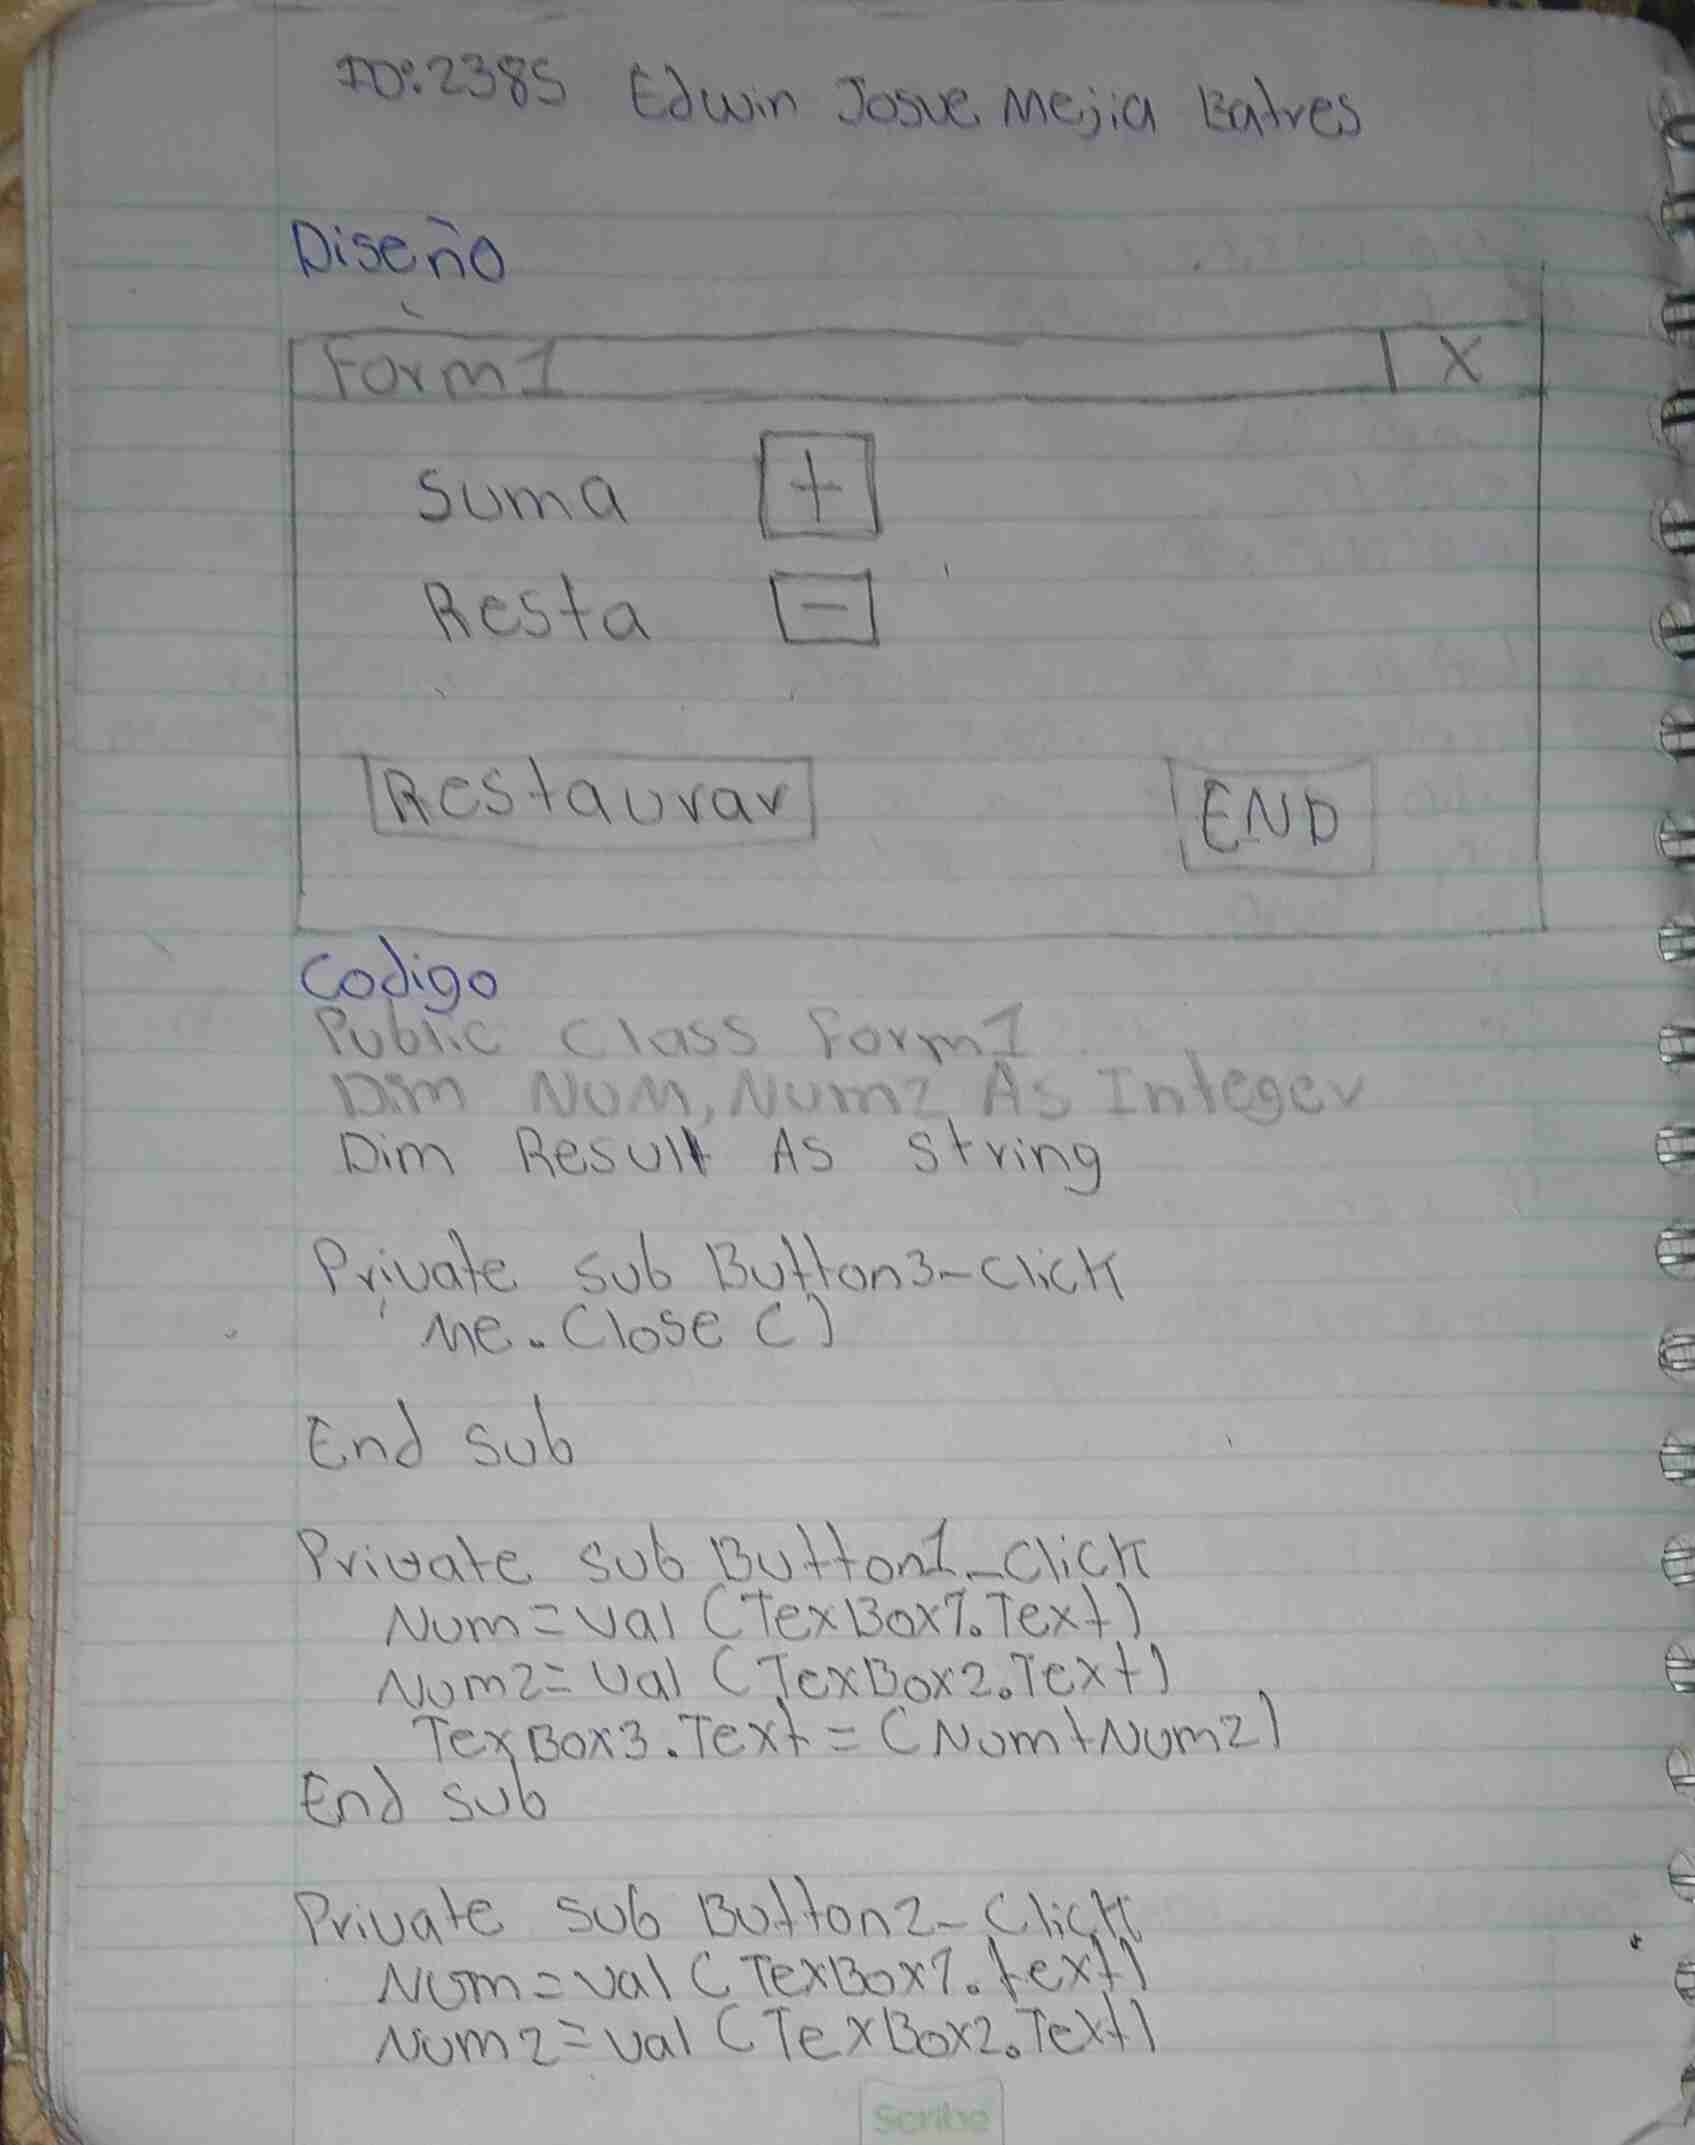 ID:2385 Edwin Josue Mejia Batres
Diseño
Form1 | X
Suma +
Resta -
Restaurar END
Codigo
Public Class Form1
Dim NuM, Num2 As Integer
Dim Result As string
Private sub Button3-click
Me.Close ()
End sub
Private sub Button1_Click
Num=val (TexBox1.Text)
Num2=val (TexBox2.Text)
TexBox3.Text=(Num+Num2)
End sub
Private sub Button2-Click
Num=val (TexBox1.text)
Num2=val (TexBox2.Text)
Scribe